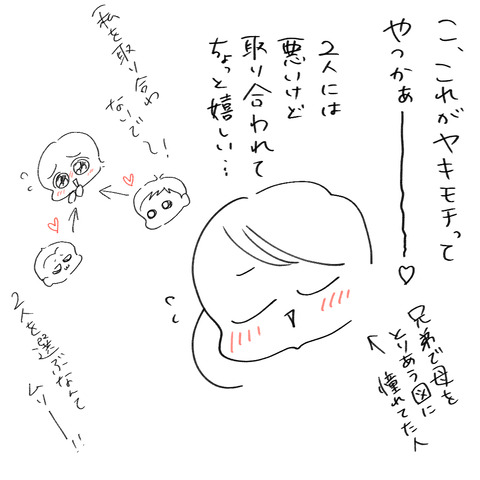 こ、これがヤキモチって
やつかぁ――――♡
2人には
悪いけど
取り合われて
ちょっと嬉しい…
私を取り合わ
ないで〜!
2人を選ぶなんて
ムリ――!!
兄弟で母を
とりあう図に
憧れてた人